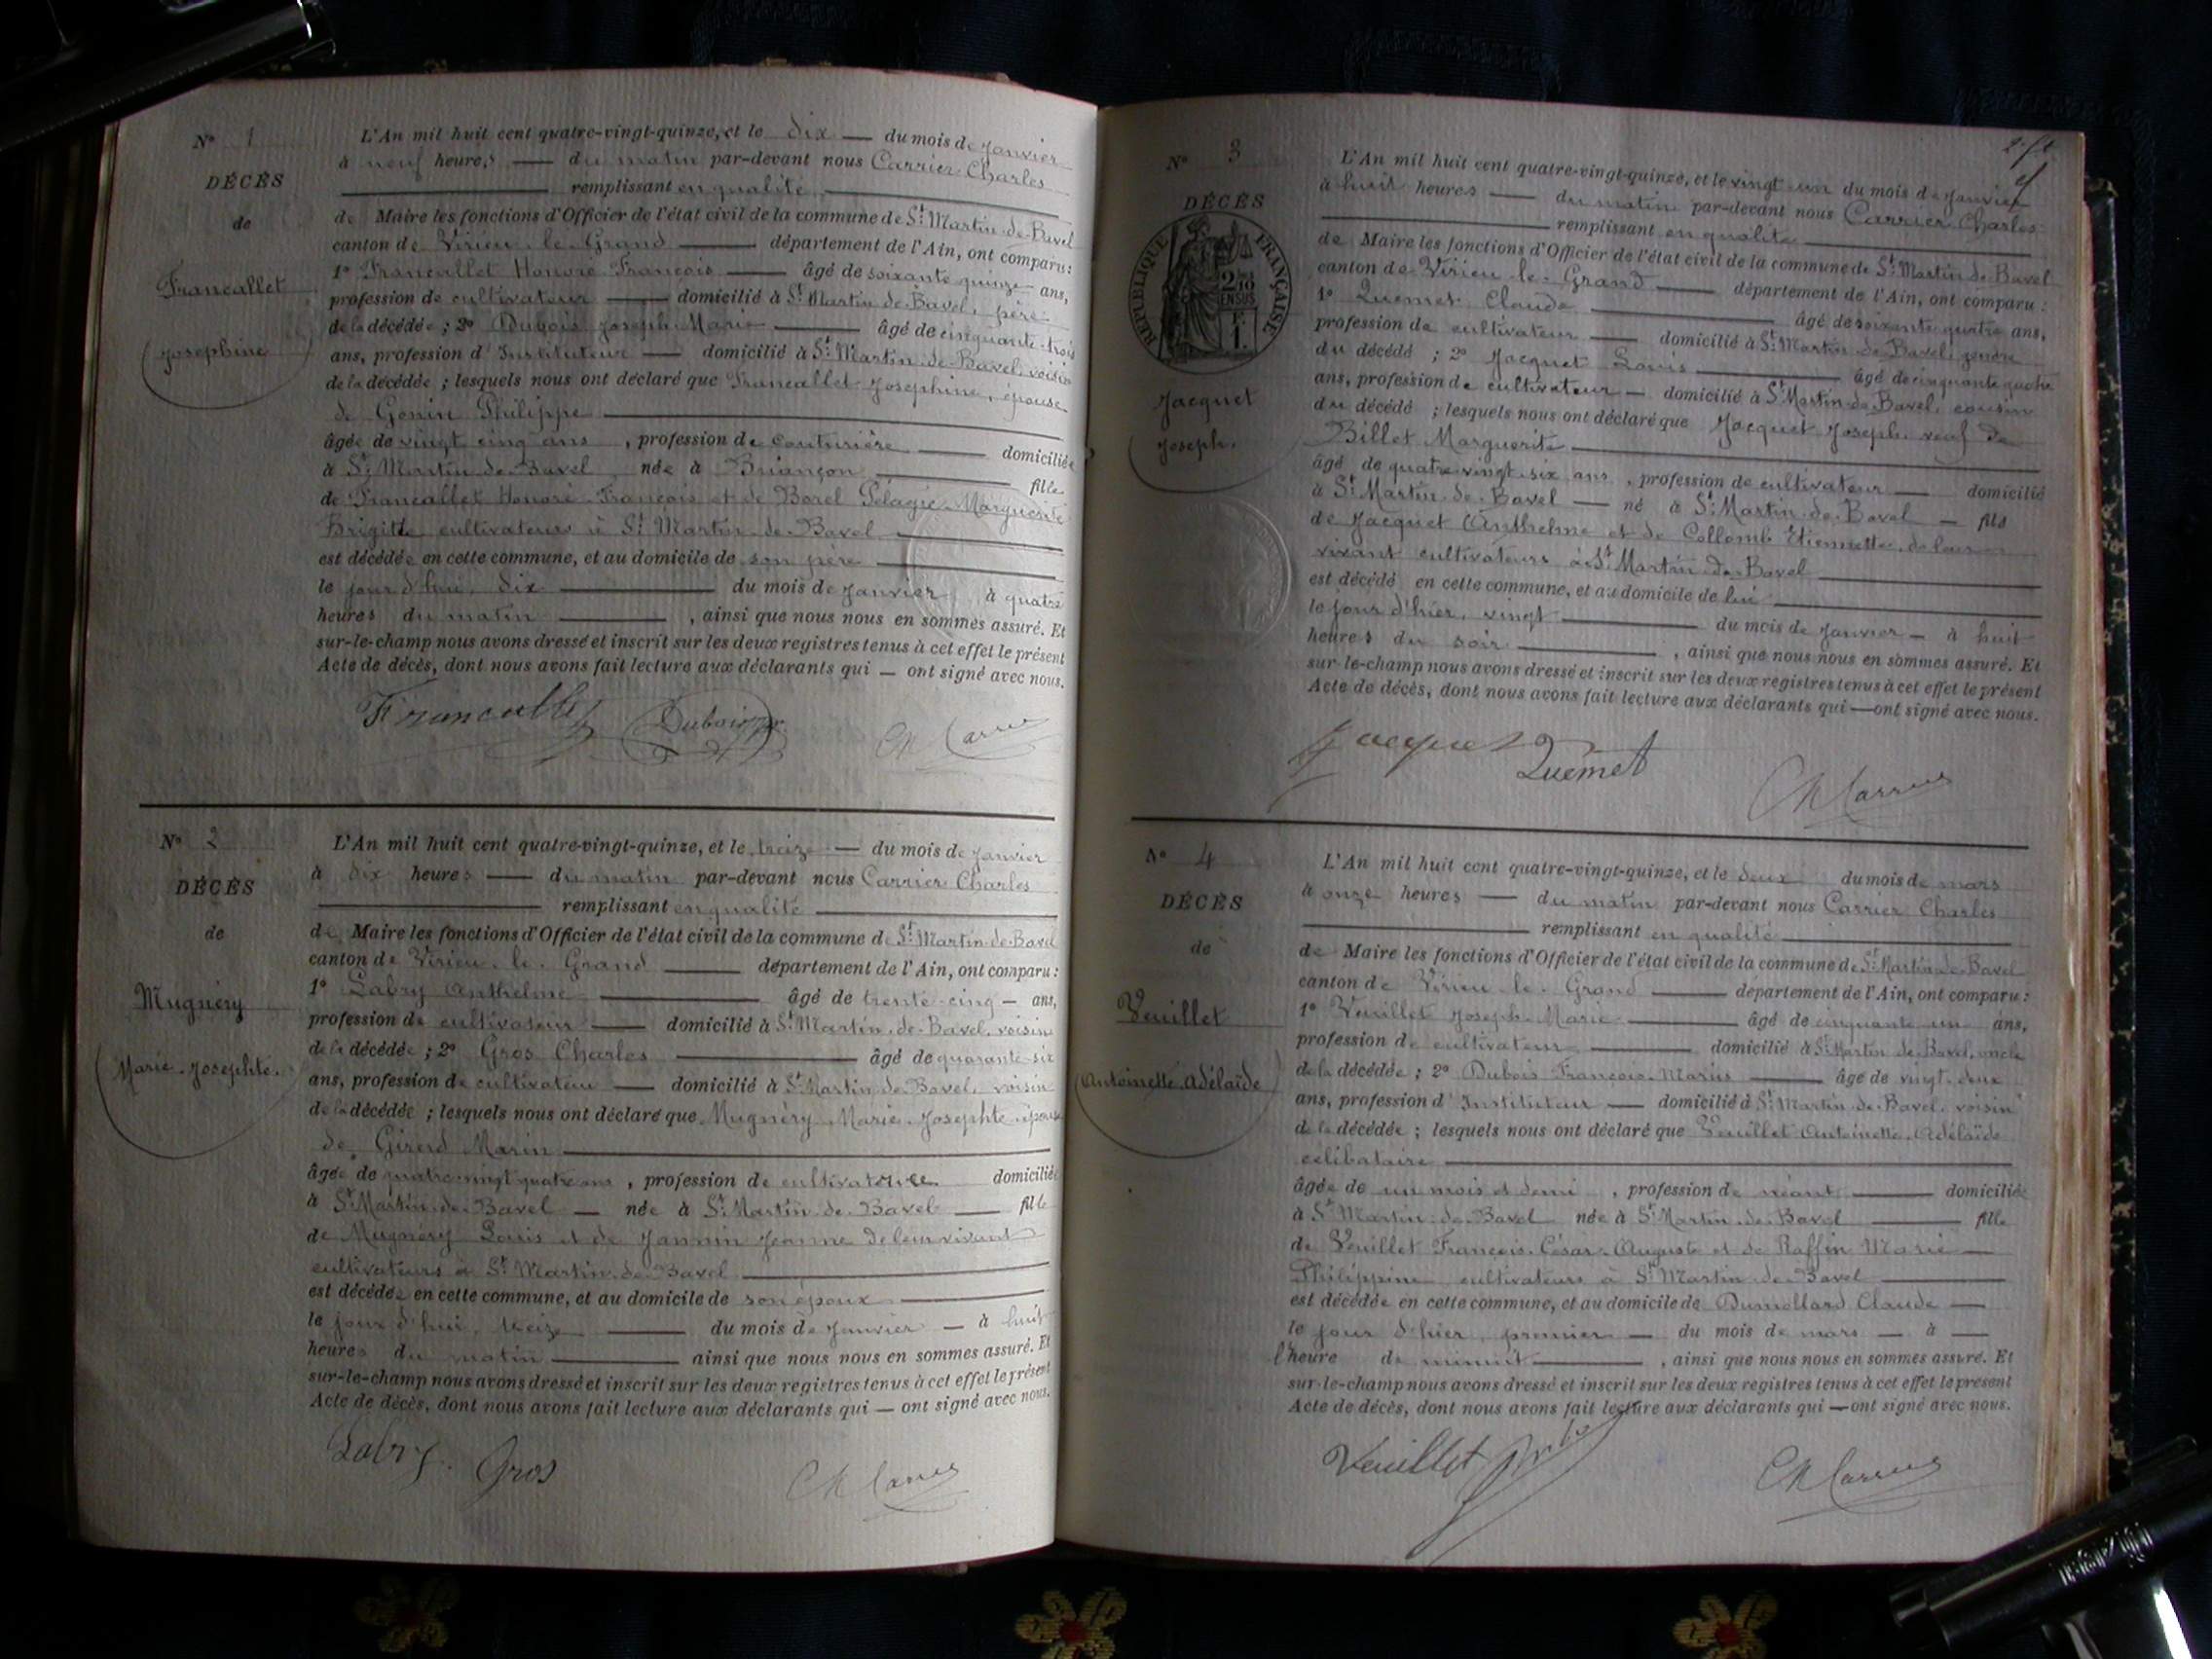 N° 1
DÉCÈS
de
Francallet
Josephine
L'An mil huit cent quatre-vingt-quinze, et le dix — du mois de Janvier
à neuf heures — du matin par-devant nous Carrier Charles
remplissant en qualité
de Maire les fonctions d'Officier de l'état civil de la commune de St Martin-de-Bavel
canton de Virieu-le-Grand — département de l'Ain, ont comparu :
1° Francallet Honoré François — âgé de soixante quinze ans,
profession de cultivateur — domicilié à St Martin-de-Bavel, père
de la décédée ; 2° Dubois Joseph Marie — âgé de cinquante-trois
ans, profession d'Instituteur — domicilié à St Martin-de-Bavel, voisin
de la décédée ; lesquels nous ont déclaré que Francallet Josephine, épouse
de Gonin Philippe
âgée de vingt cinq ans , profession de couturière — domiciliée
à St Martin-de-Bavel née à Briançon — fille
de Francallet Honoré François et de Borel Pélagie Marguerite
Brigitte cultivateurs à St Martin-de-Bavel
est décédée en cette commune, et au domicile de son père
le jour d'hui, dix — du mois de Janvier à quatre
heures du matin — , ainsi que nous nous en sommes assuré. Et
sur-le-champ nous avons dressé et inscrit sur les deux registres tenus à cet effet le présent
Acte de décès, dont nous avons fait lecture aux déclarants qui — ont signé avec nous.
Francallet Dubois Ch Carrier
N° 2
DÉCÈS
de
Mugnéry
Marie-Josephte.
L'An mil huit cent quatre-vingt-quinze, et le treize — du mois de Janvier
à dix heures — du matin par-devant nous Carrier Charles
remplissant en qualité
de Maire les fonctions d'Officier de l'état civil de la commune de St Martin-de-Bavel
canton de Virieu-le-Grand — département de l'Ain, ont comparu :
1° Labry Anthelme — âgé de trente-cinq — ans,
profession de cultivateur — domicilié à St Martin-de-Bavel, voisin
de la décédée ; 2° Gros Charles — âgé de quarante-six
ans, profession de cultivateur — domicilié à St Martin-de-Bavel, voisin
de la décédée ; lesquels nous ont déclaré que Mugnéry Marie-Josephte épouse
de Girerd Marin
âgée de quatre-vingt quatre ans , profession de cultivatrice domiciliée
à St Martin-de-Bavel — née à St Martin-de-Bavel — fille
de Mugnéry Louis et de Jannin Jeanne de leur vivant
cultivateurs à St Martin-de-Bavel
est décédée en cette commune, et au domicile de son époux
le jour d'hui, treize — du mois de Janvier — à huit
heures du matin — ainsi que nous nous en sommes assuré. Et
sur-le-champ nous avons dressé et inscrit sur les deux registres tenus à cet effet le présent
Acte de décès, dont nous avons fait lecture aux déclarants qui — ont signé avec nous.
Labry. Gros Ch Carrier
N° 3
DÉCÈS
RÉPUBLIQUE FRANÇAISE
Jacquet
Joseph.
L'An mil huit cent quatre-vingt-quinze, et le vingt un du mois de Janvier
à huit heures — du matin par-devant nous Carrier Charles
remplissant en qualité
de Maire les fonctions d'Officier de l'état civil de la commune de St Martin-de-Bavel
canton de Virieu-le-Grand — département de l'Ain, ont comparu :
1° Quemet Claude — âgé de soixante quatre ans,
profession de cultivateur — domicilié à St Martin-de-Bavel, gendre
du décédé ; 2° Jacquet Louis — âgé de cinquante quatre
ans, profession de cultivateur — domicilié à St Martin-de-Bavel, cousin
du décédé ; lesquels nous ont déclaré que Jacquet Joseph, veuf de
Billet Marguerite
âgé de quatre-vingt-six ans , profession de cultivateur — domicilié
à St Martin-de-Bavel — né à St Martin-de-Bavel — fils
de Jacquet Anthelme et de Collomb Etiennette, de leur
vivant cultivateurs à St Martin-de-Bavel
est décédé en cette commune, et au domicile de lui
le jour d'hier, vingt — du mois de Janvier — à huit
heures du soir — , ainsi que nous nous en sommes assuré. Et
sur-le-champ nous avons dressé et inscrit sur les deux registres tenus à cet effet le présent
Acte de décès, dont nous avons fait lecture aux déclarants qui — ont signé avec nous.
Jacquet Quemet Ch Carrier
N° 4
DÉCÈS
de
Veuillet
Antoinette Adélaïde
L'An mil huit cent quatre-vingt-quinze, et le deux du mois de mars
à onze heures — du matin par-devant nous Carrier Charles
remplissant en qualité
de Maire les fonctions d'Officier de l'état civil de la commune de St Martin-de-Bavel
canton de Virieu-le-Grand — département de l'Ain, ont comparu :
1° Veuillet Joseph-Marie — âgé de cinquante un ans,
profession de cultivateur — domicilié à St Martin-de-Bavel, oncle
de la décédée ; 2° Dubois François-Marius — âgé de vingt-deux
ans, profession d'Instituteur — domicilié à St Martin-de-Bavel, voisin
de la décédée ; lesquels nous ont déclaré que Veuillet Antoinette-Adélaïde
célibataire
âgée de un mois et demi , profession de néant — domiciliée
à St Martin-de-Bavel née à St Martin-de-Bavel — fille
de Veuillet François-César-Auguste et de Raffin Marie —
Philippine cultivateurs à St Martin-de-Bavel
est décédée en cette commune, et au domicile de Dumollard Claude —
le jour d'hier, premier — du mois de mars — à —
l'heure de minuit — , ainsi que nous nous en sommes assuré. Et
sur-le-champ nous avons dressé et inscrit sur les deux registres tenus à cet effet le présent
Acte de décès, dont nous avons fait lecture aux déclarants qui — ont signé avec nous.
Veuillet Ch Carrier